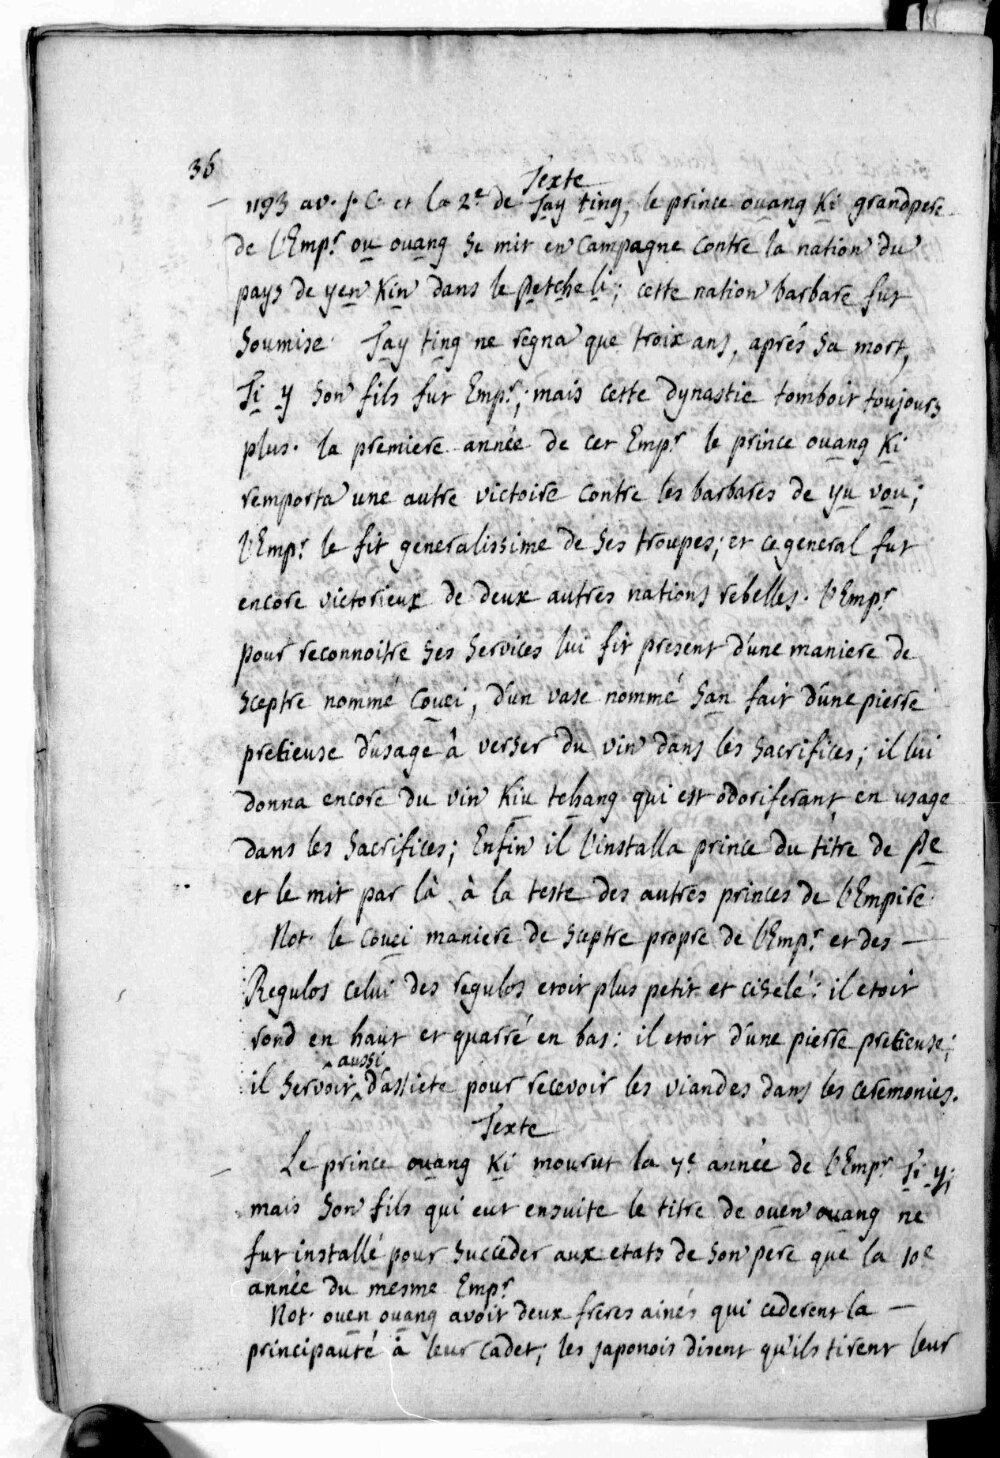 36
Texte
— 1193 av. J. C. et la 2.e de Tay ting, le prince ouang Ki grandpere
de l'Emp.r ou ouang se mit en campagne contre la nation du
pays de yen Kin dans le Petcheli; cette nation barbare fut
soumise. Tay ting ne regna que troix ans, aprés sa mort,
Ti y son fils fut Emp.r; mais cette dynastie tomboit toujours
plus. la premiere année de cet Emp.r le prince ouang Ki
remporta une autre victoire contre les barbares de yu vou;
l'Emp.r le fit generalissime de ses troupes; et ce general fut
encore victorieux de deux autres nations rebelles. l'Emp.r
pour reconnoitre ses services lui fit present d'une maniere de
sceptre nommé couei, d'un vase nommé san fait d'une pierre
pretieuse d'usage à verser du vin dans les sacrifices; il lui
donna encore du vin Kiu tchang qui est odoriferant en usage
dans les sacrifices; Enfin il l'installa prince du titre de Pe
et le mit par là à la teste des autres princes de l'Empire.
Not. le couei maniere de sceptre propre de l'Emp.r et des —
Regulos celui des regulos etoit plus petit et ciselé: il etoit
rond en haut et quarré en bas: il etoit d'une pierre pretieuse;
il servoit aussi d'assiete pour recevoir les viandes dans les ceremonies.
Texte
— Le prince ouang Ki mourut la 7.e année de l'Emp.r Ti y;
mais son fils qui eut ensuite le titre de ouen ouang ne
fut installé pour succéder aux etats de son pere que la 10.e
année du mesme Emp.r
Not. ouen ouang avoit deux freres ainés qui cederent la —
principauté à leur cadet; les japonois disent qu'ils tirent leur